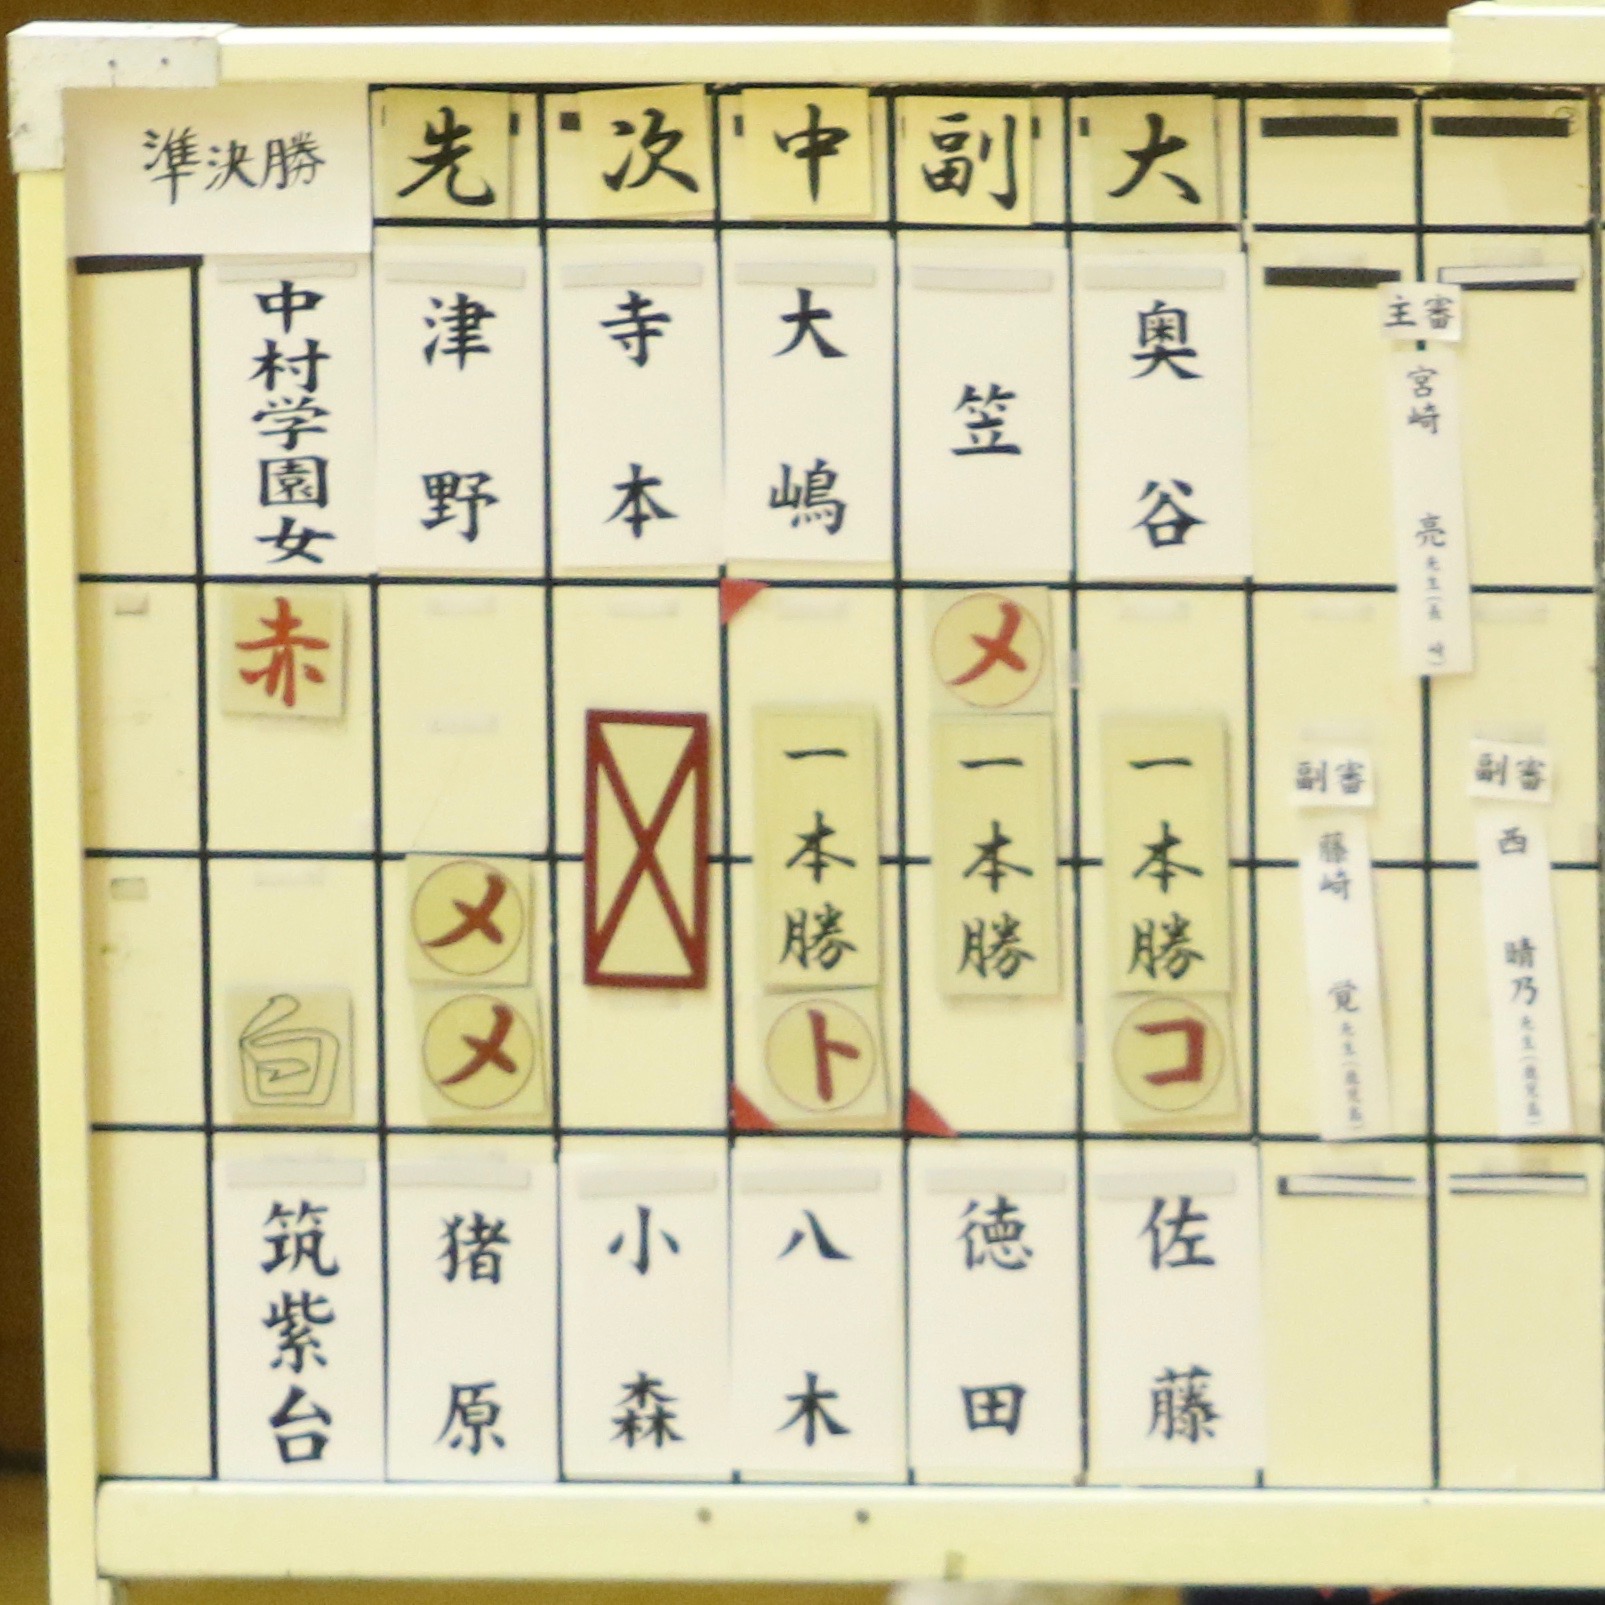 準決勝
先 次 中 副 大
中村学園女
津野
寺本
大嶋
笠
奥谷
赤
メ
一本勝
一本勝
一本勝
メ
メ
ト
コ
白
筑紫台
猪原
小森
八木
徳田
佐藤
主審
宮崎 亮 先生
副審
藤崎 覚 先生
副審
西 晴乃 先生